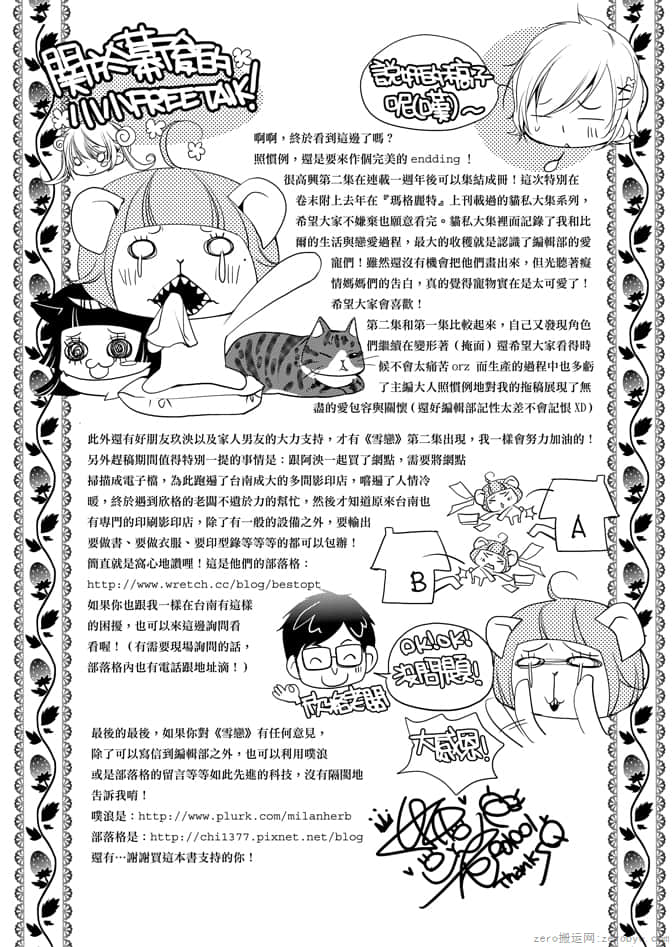 關於幕後的
小小FREE TALK!
說好的稿子
呢(嘆)～
啊啊，終於看到這邊了嗎？
照慣例，還是要來作個完美的 endding！
很高興第二集在連載一週年後可以集結成冊！這次特別在
卷末附上去年在『瑪格麗特』上刊載過的貓私大集系列，
希望大家不嫌棄也願意看完。貓私大集裡面記錄了我和比
爾的生活與戀愛過程，最大的收穫就是認識了編輯部的愛
寵們！雖然還沒有機會把他們畫出來，但光聽著癡
情媽媽們的告白，真的覺得寵物實在是太可愛了！
希望大家會喜歡！
第二集和第一集比較起來，自己又發現角色
們繼續在變形著（掩面）還希望大家看得時
候不會太痛苦 orz 而生產的過程中也多虧
了主編大人照慣例地對我的拖稿展現了無
盡的愛包容與關懷（還好編輯部記性太差不會記恨 XD）
此外還有好朋友玖泱以及家人男友的大力支持，才有《雪戀》第二集出現，我一樣會努力加油的！
另外趕稿期間值得特別一提的事情是：跟阿泱一起買了網點，需要將網點
掃描成電子檔，為此跑遍了台南成大的多間影印店，嚐遍了人情冷
暖，終於遇到欣格的老闆不遺於力的幫忙，然後才知道原來台南也
有專門的印刷影印店，除了有一般的設備之外，要輸出
要做書、要做衣服、要印型錄等等等的都可以包辦！
簡直就是窩心地讚哩！這是他們的部落格：
http://www.wretch.cc/blog/bestopt
如果你也跟我一樣在台南有這樣
的困擾，也可以來這邊詢問看
看喔！（有需要現場詢問的話，
部落格內也有電話跟地址滴！）
A
B
OK!OK!
沒問題!
欣格老闆
大感恩!
最後的最後，如果你對《雪戀》有任何意見，
除了可以寫信到編輯部之外，也可以利用噗浪
或是部落格的留言等等如此先進的科技，沒有隔閡地
告訴我唷！
噗浪是：http://www.plurk.com/milanherb
部落格是：http://chi1377.pixnet.net/blog
還有…謝謝買這本書支持的你！
Thanks
zero搬运网:zerobyw.com